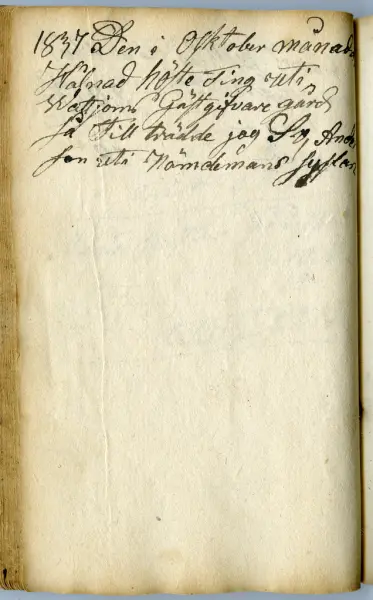 1837 Den i Ocktober månads
Hålnad höste Ting uti
Wättjoms Gästgifvare gård
så Till trädde jag Sv, Ande
son uti Nämdemans sysslan